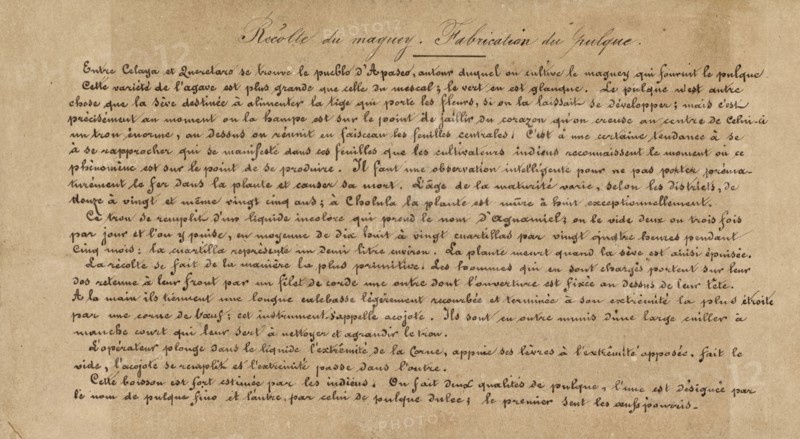 Récolte du maguey. Fabrication du pulque.
Entre Celaya et Queretaro se trouve le pueblo d'Apaseo, autour duquel on cultive le maguey qui fournit le pulque
Cette variété de l'agave est plus grande que celle du mescal; le vert en est glauque. Le pulque n'est autre
chose que la sève destinée à alimenter la tige qui porte les fleurs, si on la laissait se développer; mais c'est
précisément au moment où la hampe est sur le point de jaillir du corazon qu'on creuse au centre de celui-ci
un trou énorme, au dessus on réunit en faisceau les feuilles centrales. C'est à une certaine tendance à se
à se rapprocher qui se manifeste dans ces feuilles que les cultivateurs indiens reconnaissent le moment où ce
phénomène est sur le point de se produire. Il faut une observation intelligente pour ne pas porter préma-
turément le fer dans la plante et causer sa mort. L'âge de la maturité varie, selon les districts, de
douze à vingt et même vingt cinq ans; à Cholula la plante est mûre à huit exceptionnellement.
Ce trou se remplit d'un liquide incolore qui prend le nom d'aguamiel; on le vide deux ou trois fois
par jour et l'on y puise, en moyenne de dix huit à vingt cuartillas par vingt quatre heures pendant
cinq mois: la cuartilla représente un demi litre environ. La plante meurt quand la sève est ainsi épuisée.
La récolte se fait de la manière la plus primitive; les hommes qui en sont chargés portent sur leur
dos retenue à leur front par un filet de corde une outre dont l'ouverture est fixée au dessus de leur tête.
A la main ils tiennent une longue calebasse légèrement recourbée et terminée à son extrémité la plus étroite
par une corne de bœuf; cet instrument s'appelle acojote. Ils sont en outre munis d'une large cuiller à
manche court qui leur sert à nettoyer et agrandir le trou.
L'opérateur plonge dans le liquide l'extrémité de la corne, appuie ses lèvres à l'extrémité opposée, fait le
vide, l'acojote se remplit et l'extrémité passe dans l'outre.
Cette boisson est fort estimée par les indiens. On fait deux qualités de pulque, l'une est désignée par
le nom de pulque fino et l'autre par celui de pulque dulce; le premier sent les œufs pourris.